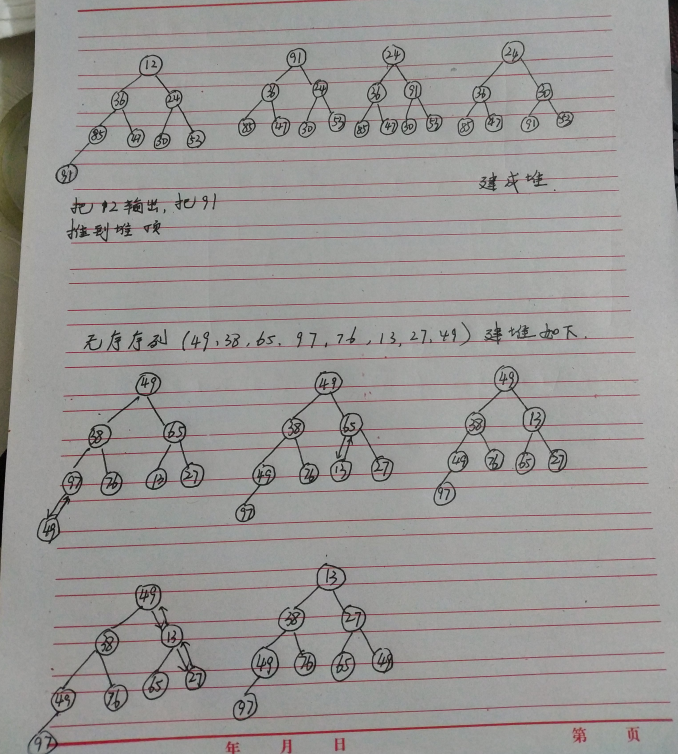 12 91 24 24
36 24 36 24 36 91 36 30
85 47 30 53 85 47 30 53 85 47 30 53 85 47 91 53
91
建成堆.
把12输出,把91
推到堆顶
无序序列(49,38,65,97,76,13,27,49)建堆如下.
49 49 49
38 65 38 65 38 13
97 76 13 27 49 76 13 27 49 76 65 27
49 97 97
49 13
38 13 38 27
49 76 65 27 49 76 65 49
97 97
年 月 日 第 页